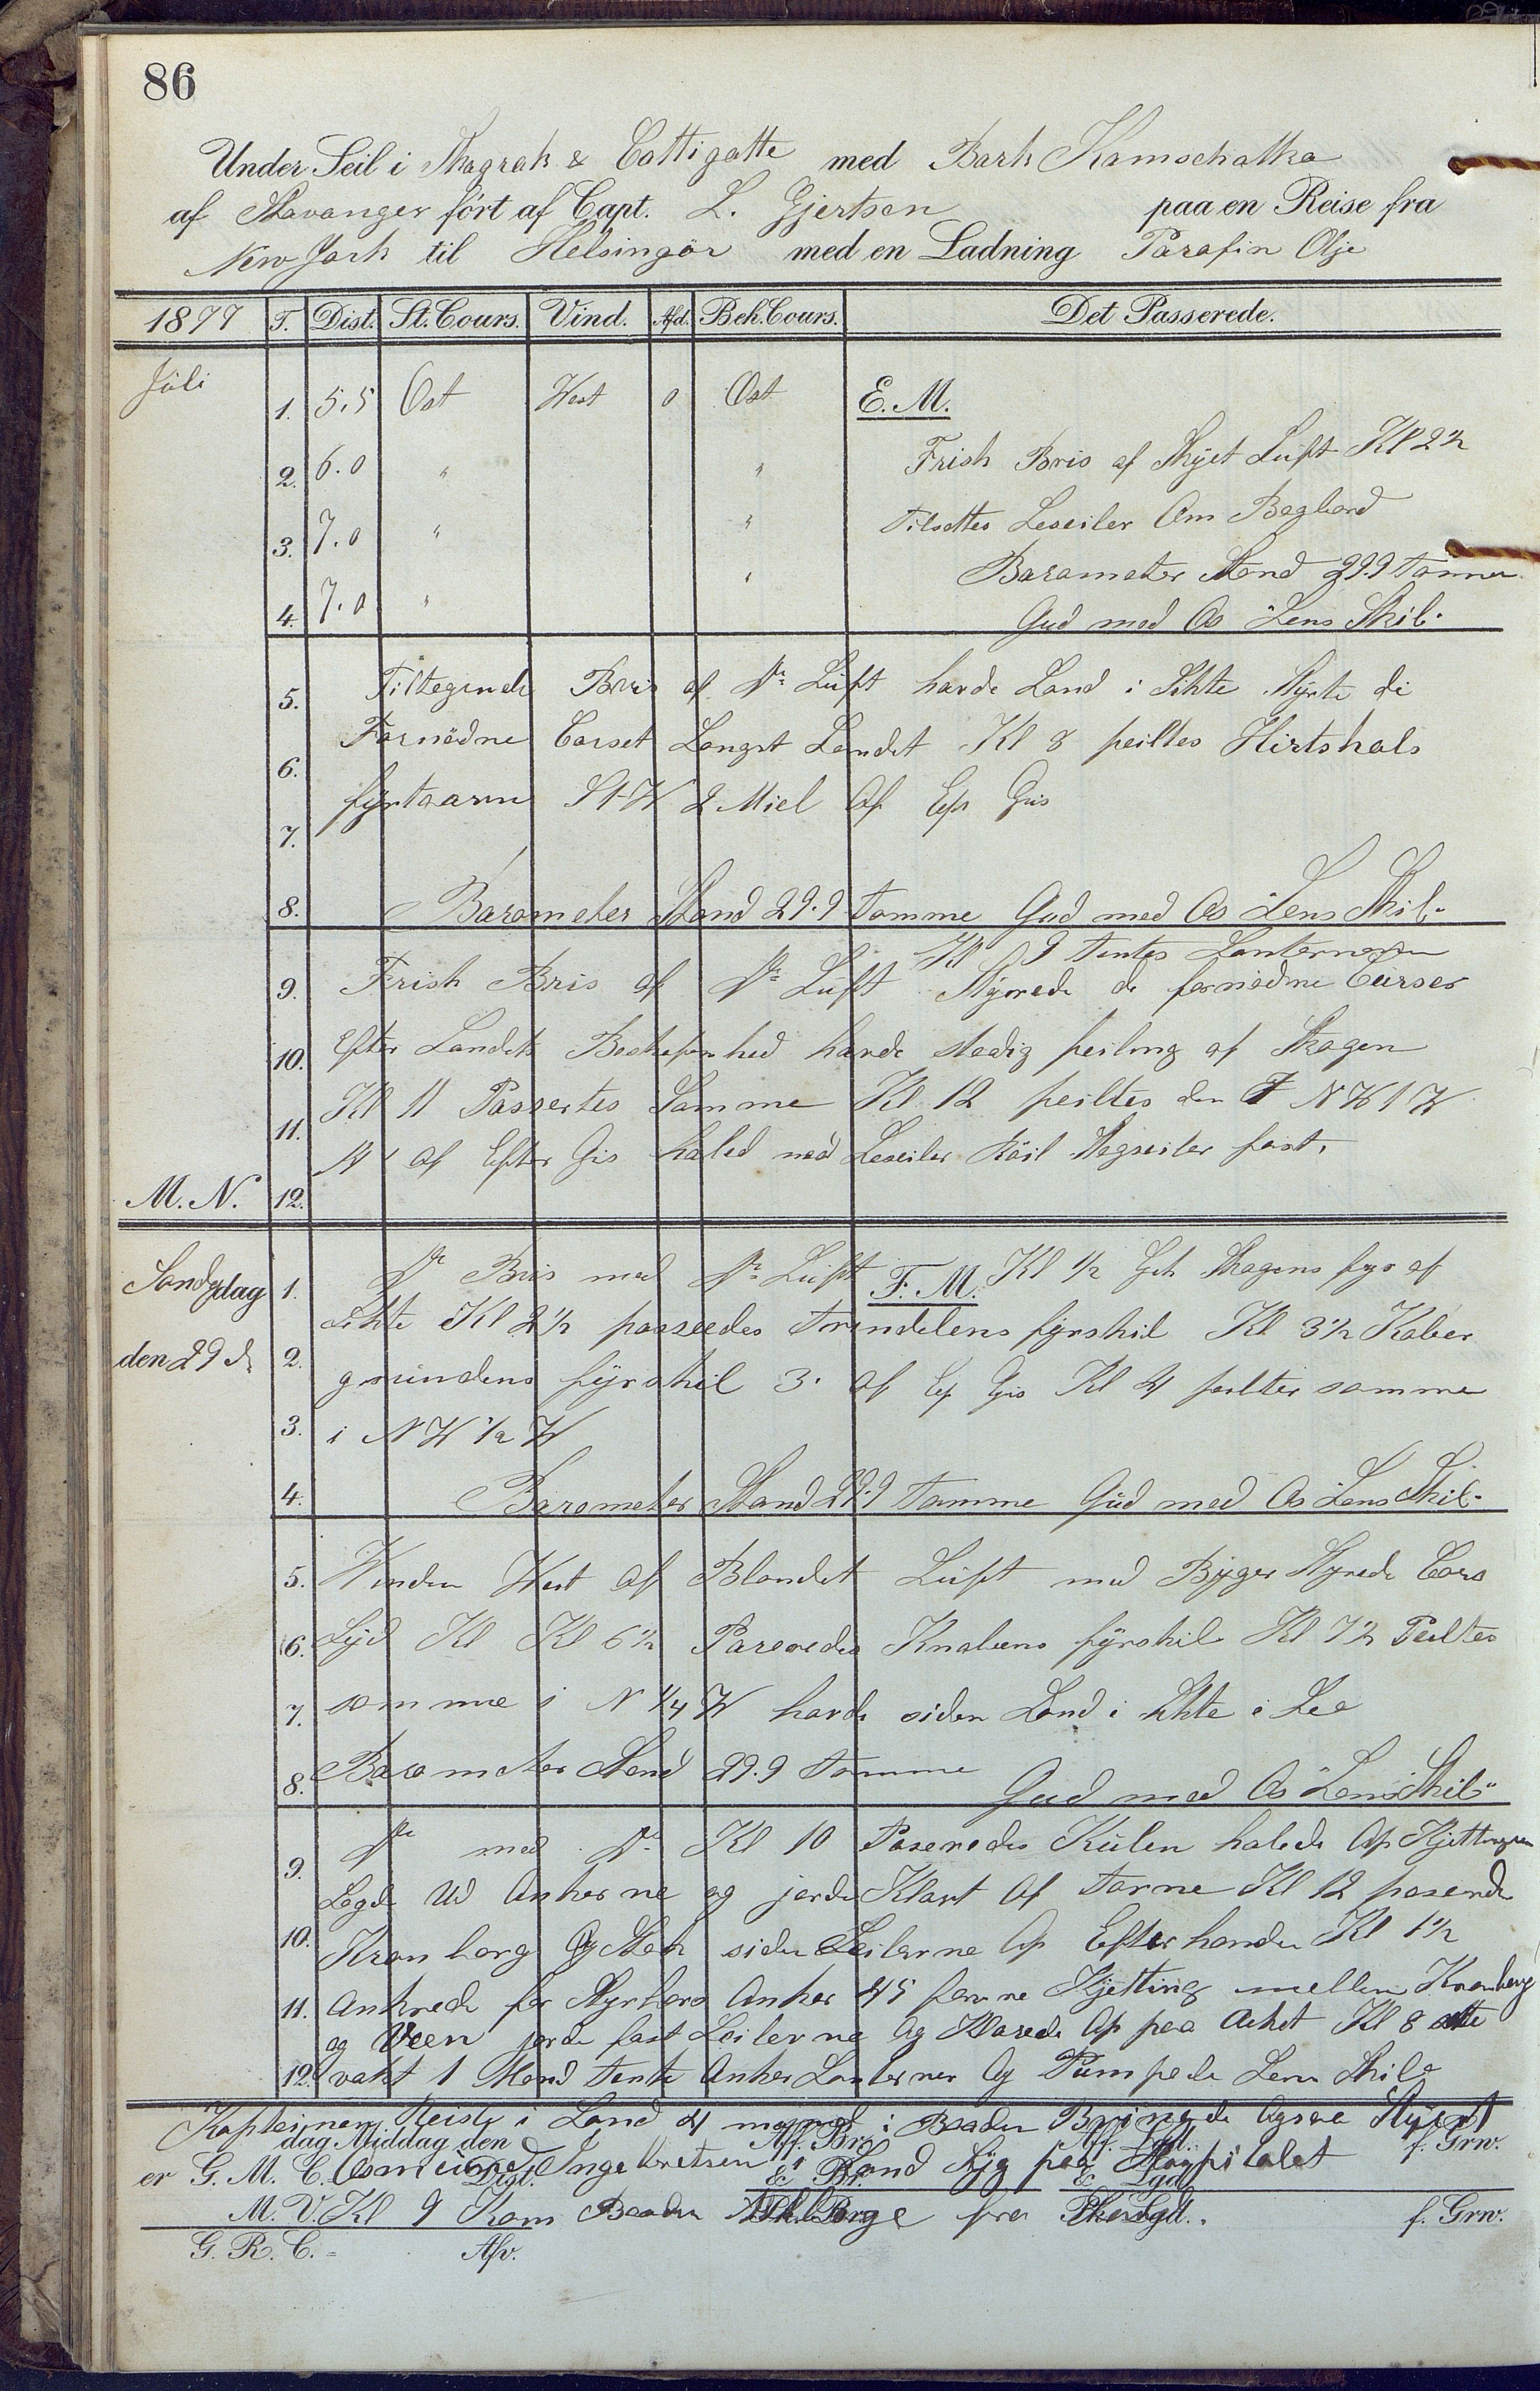 86
Under Seil i Skagrak & Cattigatte med Bark Kamschatka
af Stavanger fört af Capt. L. Gjertsen paa en Reise fra
New Jork til Helsingör med en Ladning Parafin Olje
1877 T. Dist. St. Cours. Vind. Afd. Beh. Cours. Det Passerede.
Juli 1. 5.5 Ost West 0 Ost E. M.
2. 6.0 " " Frisk Bris af Skyet Luft Kl 2½
3. 7.0 " " Tilsattes Leseiler Om Bagbord
Barometer Stand 29.9 Tomme
4. 7.0 " " Gud med Os Lens Skib.
5. Tiltagende Bris af Do Luft havde Land i Sikte Styrte de
6. Fornödne Corset Langst Landet Kl 8 peiltes Hirtshals
7. fyrtaarn 2 Miel Af Eft Gis
8. Barometer Stand 29.9 Tomme Gud med Os Lens Skib.
Kl 9 Tentes Lanternerne
9. Frisk Bris af Do Luft Styrede de fornödne Curser
10. Efter Landets Beskafenhed havde stadig peiling af Skagen
11. Kl 11 Passertes Samme Kl 12 peiltes den N W 1 W
M. N. 12. af Efter Gis haled ned Leseiler Röil Stagseiler fast.
Sondagdag 1. Do Bris med Do Luft F. M. Kl ½ Gik Skagens fyr af
Sikte Kl 2½ passeedes Trindelens fyrskib Kl 3½ Kober
den 29 de 2. grundens fyrskib 3. af Ef Gis Kl 4 peiltes samme
3. i N W ½ W
4. Barometer Stand 29.9 Tomme Gud med Os Lens Skib.
5. Vinden West af Blandet Luft med Byger Styrede Cors
6. Syd Kl Kl 6½ Paseredes Knobens fyrskib Kl 7½ Peiltes
7. somme i N ¼ W havde siden Land i Sikte i Le
8. Barometer Stand 29.9 Tomme Gud med Os Lens Skib"
9. Do med Do Kl 10 Paseredes Kulen halede Op Kjettingen
Legde Ud Ankerne og jorde Klart Af Torne Kl 12 paserede
10. Kronborg Og siden Seilerne Op Efter handen Kl 1½
11. Ankrede for Styrbors Anker 45 favne Kjetting mellem Kronborg
og Veen jorde fast Seilerne Og Klarede Op paa Deket Kl 8 satte
12. vakt 1 Mand Tente Anker Lanterner Og Pumpede Lens Skib
Kapteinen Reiste i Land 4 mand i Baaden Bringede Agsaa Styert
dag Middag den Aff. Br. Aff. Lgd. f. Grw.
er G. M. C. Osmund Ingebretsen i Land paa Hospitalet
Dist. & Br. & Lgd.
M. V. Kl 9 Kom Baaden fra
Pk. Br. Pk. Lgd. f. Grw.
G. R. C. = Afv.